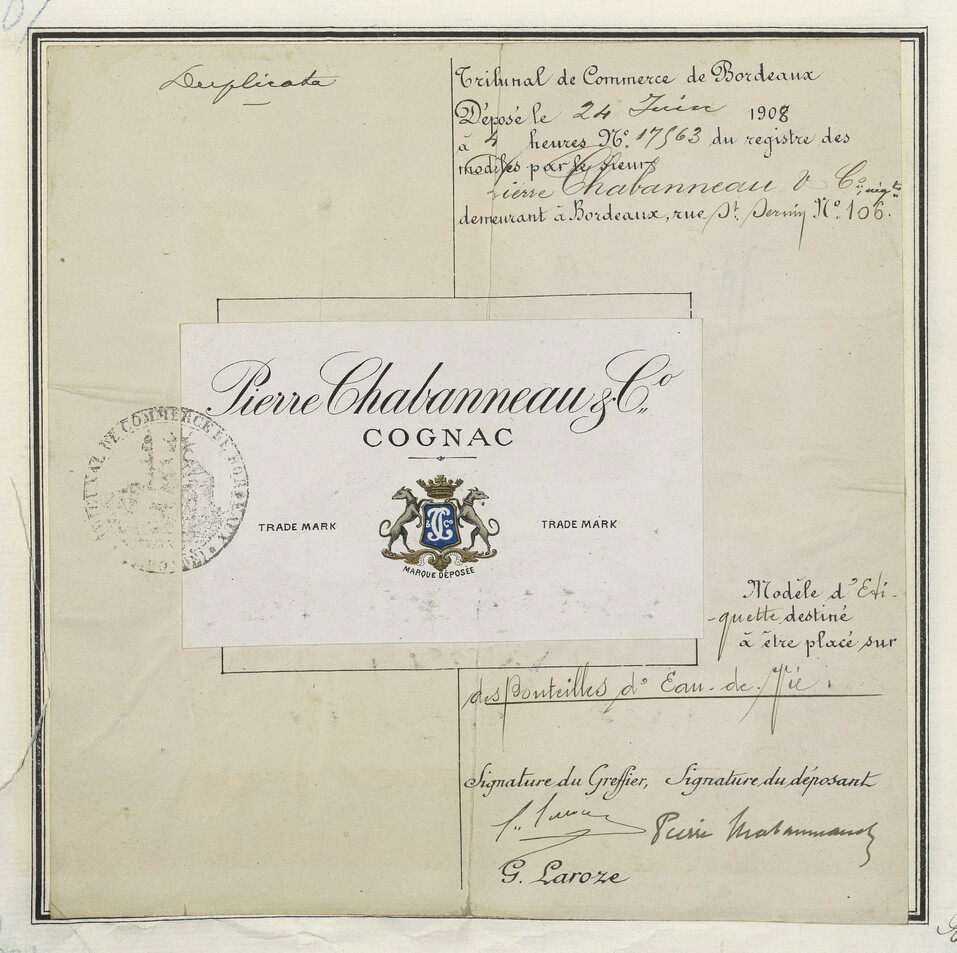 Duplicata
Tribunal de Commerce de Bordeaux
Déposé le 24 Juin 1908
à 4 heures N° 17563 du registre des
modèles par le sieur
Pierre Chabanneau & Co. négts
demeurant à Bordeaux, rue St. Sernin N° 106.
Pierre Chabanneau & Co.
COGNAC
TRIBUNAL DE COMMERCE DE BORDEAUX
TRADE MARK
TRADE MARK
MARQUE DÉPOSÉE
Modèle d'Eti-
-quette destiné
à être placé sur
des bouteilles d'Eau-de-Vie.
Signature du Greffier, Signature du déposant
Pierre Chabanneau
G. Laroze